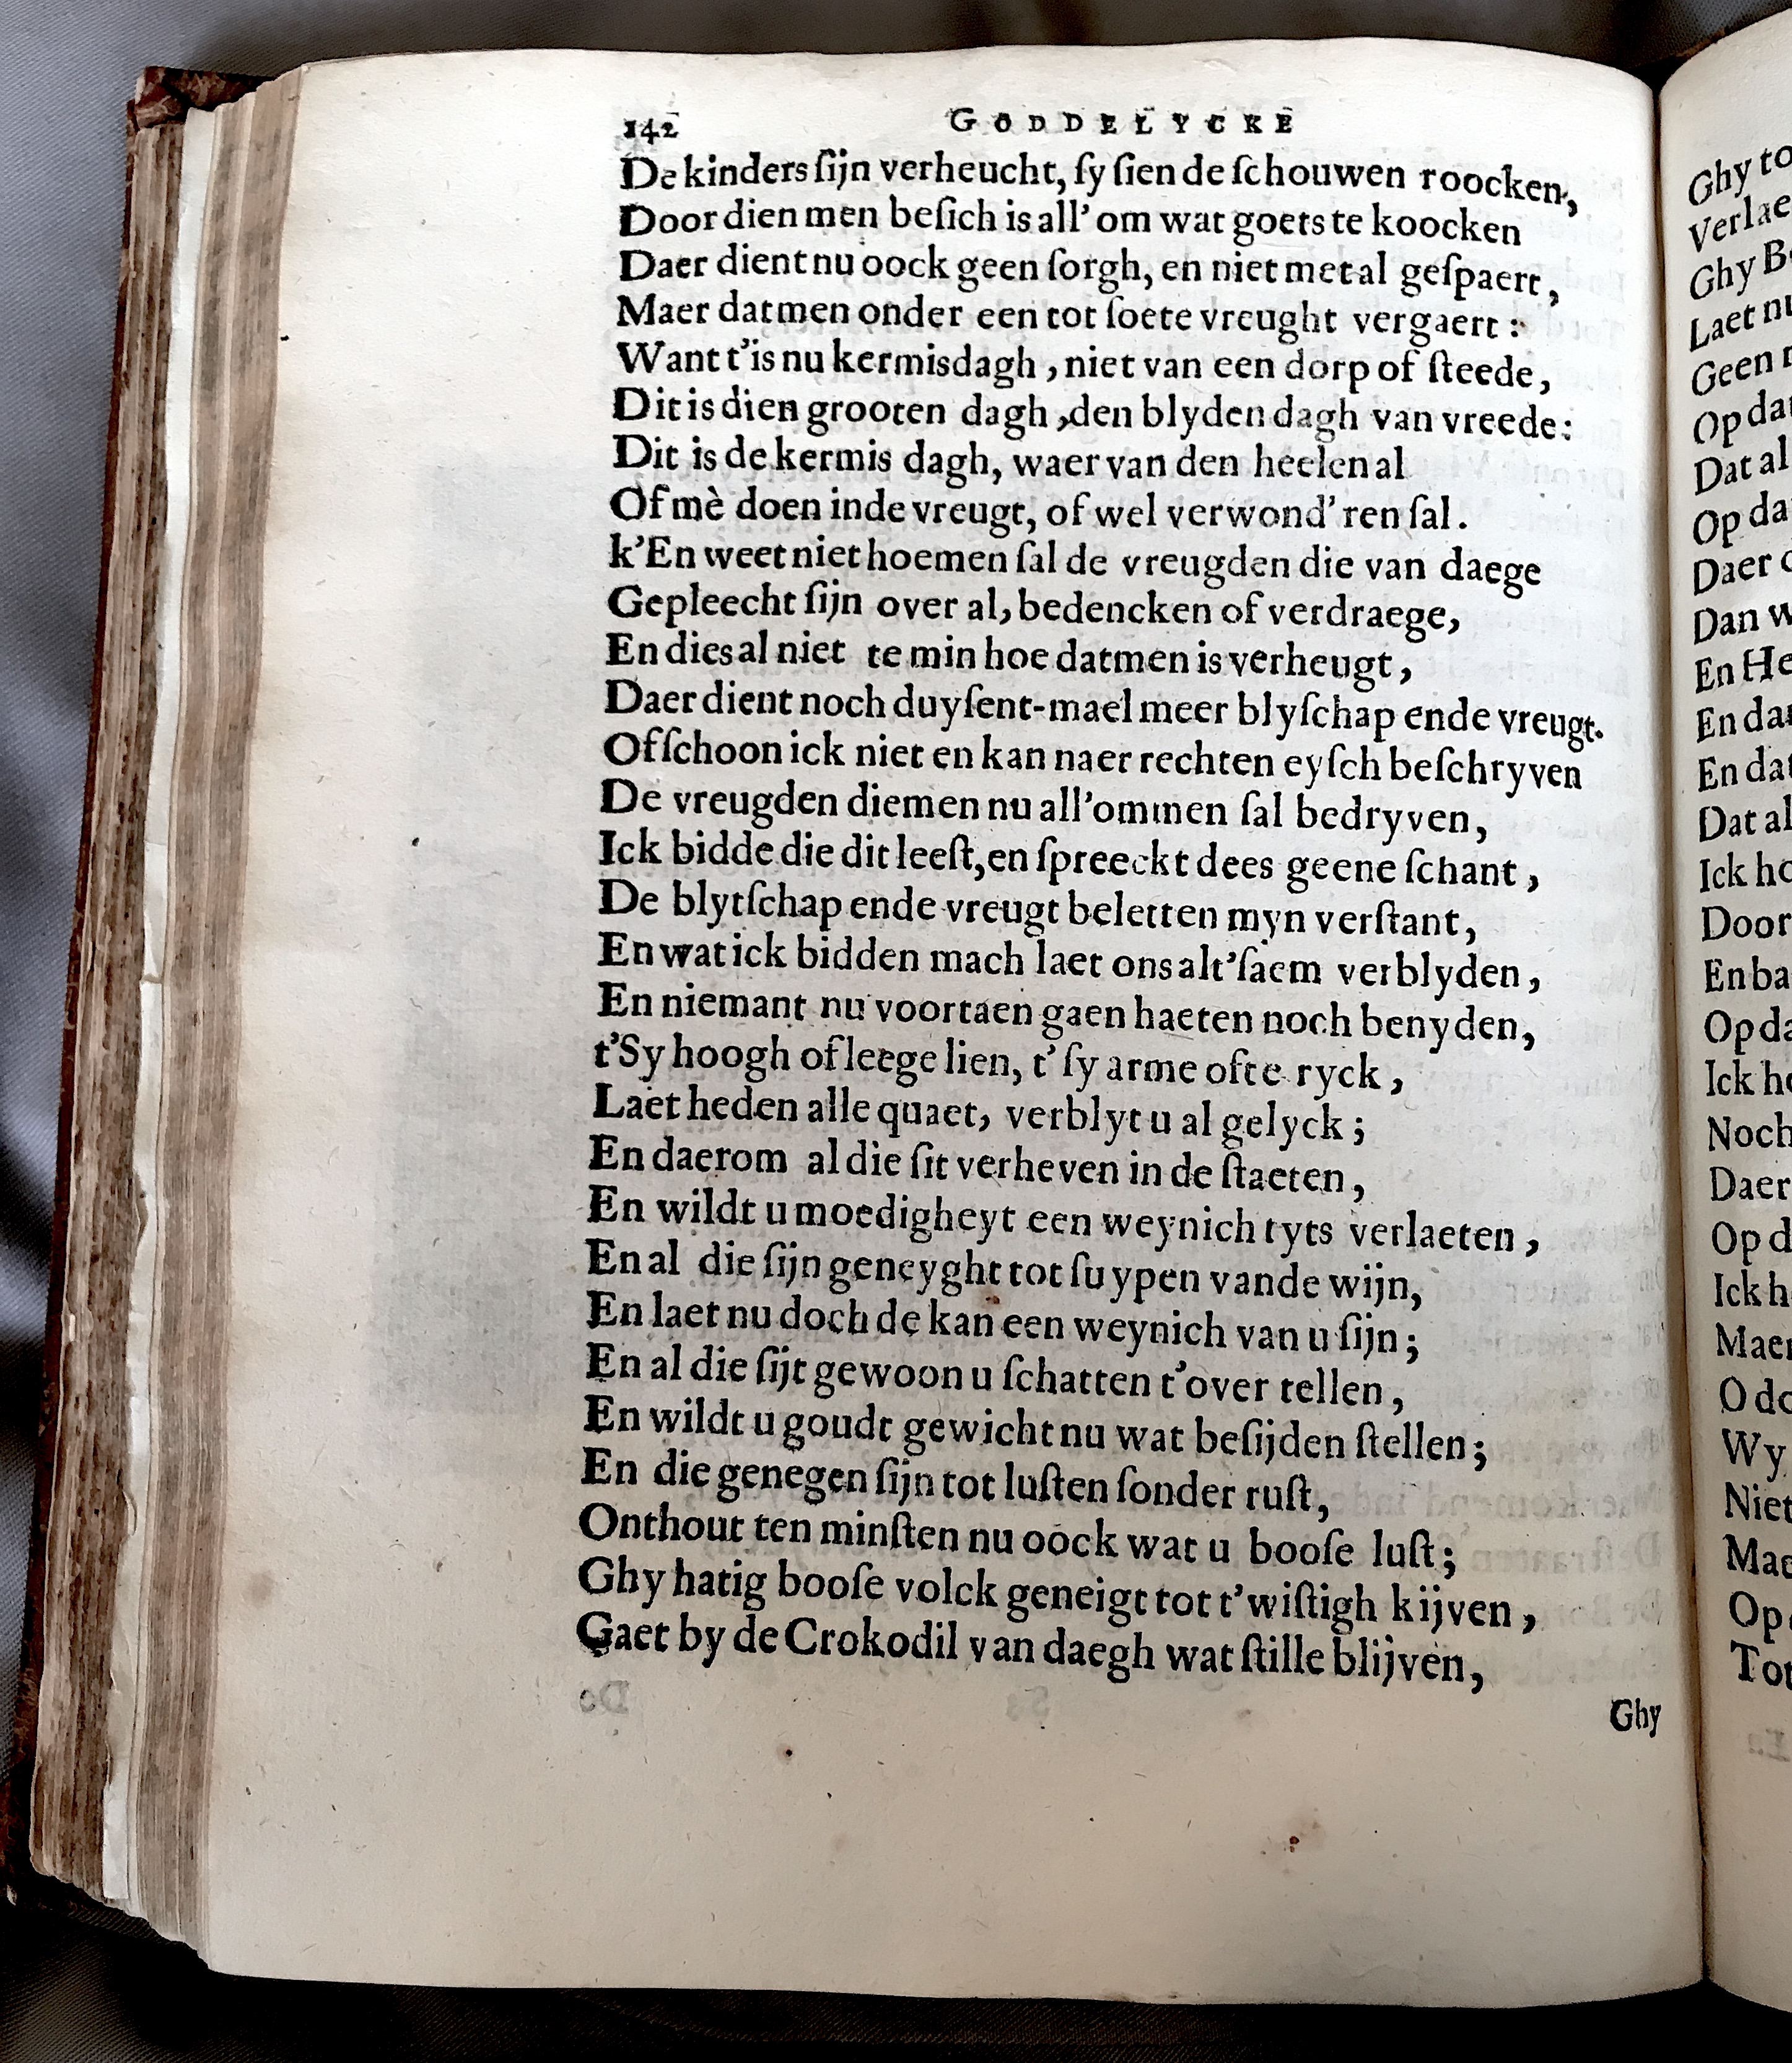 142 GODDELYCKE
De kinders ſijn verheucht, ſy ſien de ſchouwen roocken,
Door dien men beſich is all' om wat goets te koocken
Daer dient nu oock geen ſorgh, en niet met al geſpaert,
Maer datmen onder een tot ſoete vreught vergaert:
Want t'is nu kermisdagh, niet van een dorp of ſteede,
Dit is dien grooten dagh, den blyden dagh van vreede:
Dit is de kermis dagh, waer van den heelen al
Of mè doen inde vreugt, of wel verwond'ren ſal.
k'En weet niet hoemen ſal de vreugden die van daege
Gepleecht ſijn over al, bedencken of verdraege,
En dies al niet te min hoe datmen is verheugt,
Daer dient noch duyſent-mael meer blyſchap ende vreugt.
Ofſchoon ick niet en kan naer rechten eyſch beſchryven
De vreugden diemen nu all'ommen ſal bedryven,
Ick bidde die dit leeſt, en ſpreeckt dees geene ſchant,
De blytſchap ende vreugt beletten myn verſtant,
En wat ick bidden mach laet ons alt'ſaem verblyden,
En niemant nu voortaen gaen haeten noch benyden,
t'Sy hoogh of leege lien, t'ſy arme ofte ryck,
Laet heden alle quaet, verblyt u al gelyck;
En daerom al die ſit verheven in de ſtaeten,
En wildt u moedigheyt een weynich tyts verlaeten,
En al die ſijn geneyght tot ſuypen vande wijn,
En laet nu doch de kan een weynich van u ſijn;
En al die ſijt gewoon u ſchatten t'over tellen,
En wildt u goudt gewicht nu wat beſijden ſtellen;
En die genegen ſijn tot luſten ſonder ruſt,
Onthout ten minſten nu oock wat u booſe luſt;
Ghy hatig booſe volck geneigt tot t'wiſtigh kijven,
Gaet by de Crokodil van daegh wat ſtille blijven,
Ghy
Ghy
Laet
Geen
Dat al
Daer
Dan
En
Dat al
Ick
Door
Ick
Noch
Daer
Ick
Wy
Niet